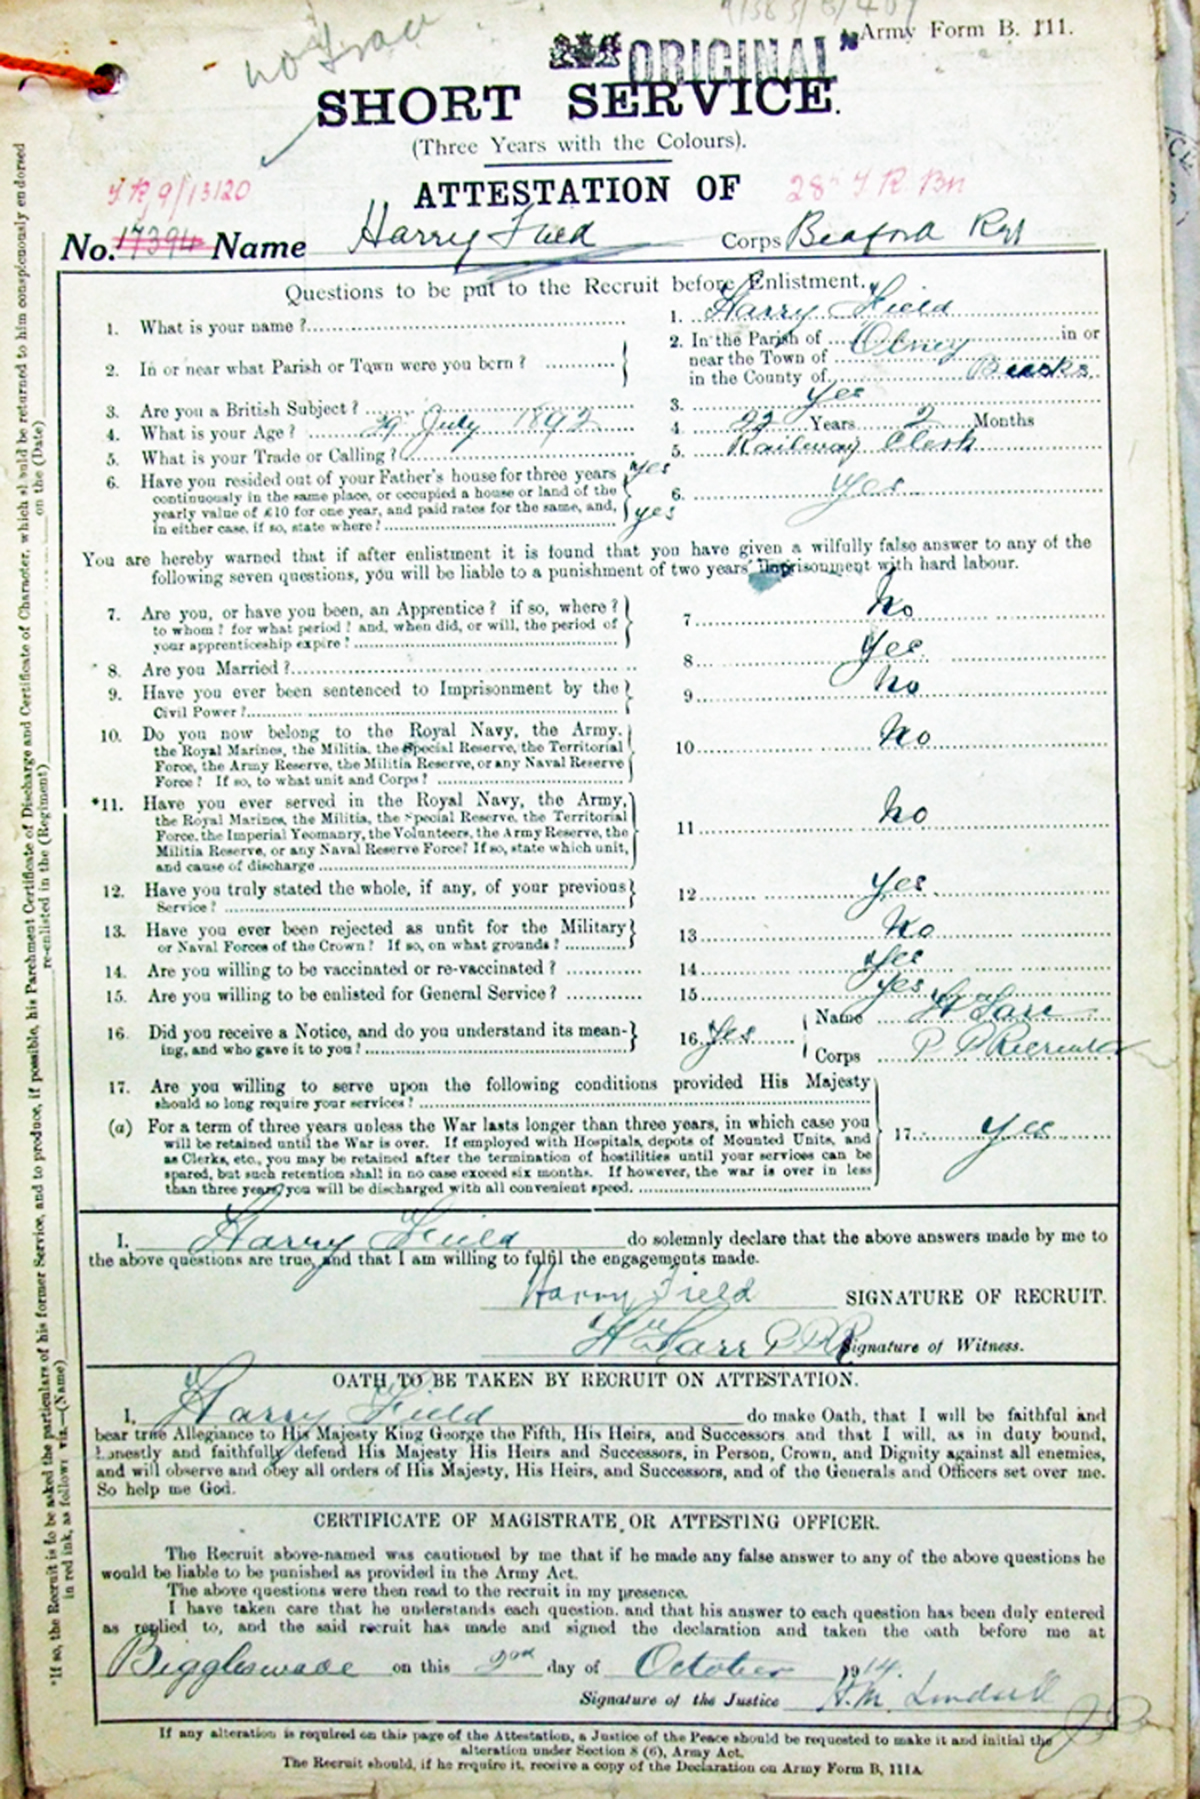 no Trace
Army Form B. 111.
"ORIGINAL"
SHORT SERVICE.
(Three Years with the Colours).
ATTESTATION OF
T R 9/13120
28th T R Bn
No. 17394 Name Harry Field Corps Bedford Regt
Questions to be put to the Recruit before Enlistment.
1. What is your name ? 1. Harry Field
2. In or near what Parish or Town were you born ? 2. In the Parish of Olney in or
near the Town of
in the County of Bucks
3. Are you a British Subject ? 3. Yes
4. What is your Age ? 29 July 1892 4 22 Years 2 Months
5. What is your Trade or Calling ? 5. Railway Clerk
6. Have you resided out of your Father's house for three years yes
continuously in the same place, or occupied a house or land of the 6. Yes
yearly value of £10 for one year, and paid rates for the same, and, yes
in either case, if so, state where ?
You are hereby warned that if after enlistment it is found that you have given a wilfully false answer to any of the
following seven questions, you will be liable to a punishment of two years' imprisonment with hard labour.
7. Are you, or have you been, an Apprentice ? if so, where ? 7 No
to whom ? for what period ? and, when did, or will, the period of
your apprenticeship expire ?
8. Are you Married ? 8 Yes
9. Have you ever been sentenced to Imprisonment by the 9 No
Civil Power ?
10. Do you now belong to the Royal Navy, the Army, 10 No
the Royal Marines, the Militia, the Special Reserve, the Territorial
Force, the Army Reserve, the Militia Reserve, or any Naval Reserve
Force ? If so, to what unit and Corps ?
*11. Have you ever served in the Royal Navy, the Army, 11 No
the Royal Marines, the Militia, the Special Reserve, the Territorial
Force, the Imperial Yeomanry, the Volunteers, the Army Reserve, the
Militia Reserve, or any Naval Reserve Force? If so, state which unit,
and cause of discharge
12. Have you truly stated the whole, if any, of your previous 12 Yes
Service ?
13. Have you ever been rejected as unfit for the Military 13 No
or Naval Forces of the Crown ? If so, on what grounds ?
14. Are you willing to be vaccinated or re-vaccinated ? 14 Yes
15. Are you willing to be enlisted for General Service ? 15 Yes
16. Did you receive a Notice, and do you understand its mean- 16 Yes Name
ing, and who gave it to you ? Corps P P Recruiter
17. Are you willing to serve upon the following conditions provided His Majesty
should so long require your services ?
(a) For a term of three years unless the War lasts longer than three years, in which case you 17. Yes
will be retained until the War is over. If employed with Hospitals, depots of Mounted Units, and
as Clerks, etc., you may be retained after the termination of hostilities until your services can be
spared, but such retention shall in no case exceed six months. If however, the war is over in less
than three years, you will be discharged with all convenient speed.
I. Harry Field do solemnly declare that the above answers made by me to
the above questions are true, and that I am willing to fulfil the engagements made.
Harry Field SIGNATURE OF RECRUIT.
Signature of Witness.
OATH TO BE TAKEN BY RECRUIT ON ATTESTATION.
I, Harry Field do make Oath, that I will be faithful and
bear true Allegiance to His Majesty King George the Fifth, His Heirs, and Successors and that I will, as in duty bound,
honestly and faithfully defend His Majesty His Heirs and Successors, in Person, Crown, and Dignity against all enemies,
and will observe and obey all orders of His Majesty, His Heirs, and Successors, and of the Generals and Officers set over me.
So help me God.
CERTIFICATE OF MAGISTRATE OR ATTESTING OFFICER.
The Recruit above-named was cautioned by me that if he made any false answer to any of the above questions he
would be liable to be punished as provided in the Army Act.
The above questions were then read to the recruit in my presence.
I have taken care that he understands each question, and that his answer to each question has been duly entered
as replied to, and the said recruit has made and signed the declaration and taken the oath before me at
Biggleswade on this 2nd day of October 1914.
Signature of the Justice H.M. Lindsell
If any alteration is required on this page of the Attestation, a Justice of the Peace should be requested to make it and initial the
alteration under Section 8 (6), Army Act.
The Recruit should, if he require it, receive a copy of the Declaration on Army Form B, 111A
*If so, the Recruit is to be asked the particulars of his former Service, and to produce, if possible, his Parchment Certificate of Discharge and Certificate of Character, which should be returned to him conspicuously endorsed
in red ink, as follows viz.—(Name) re-enlisted in the (Regiment) on the (Date)